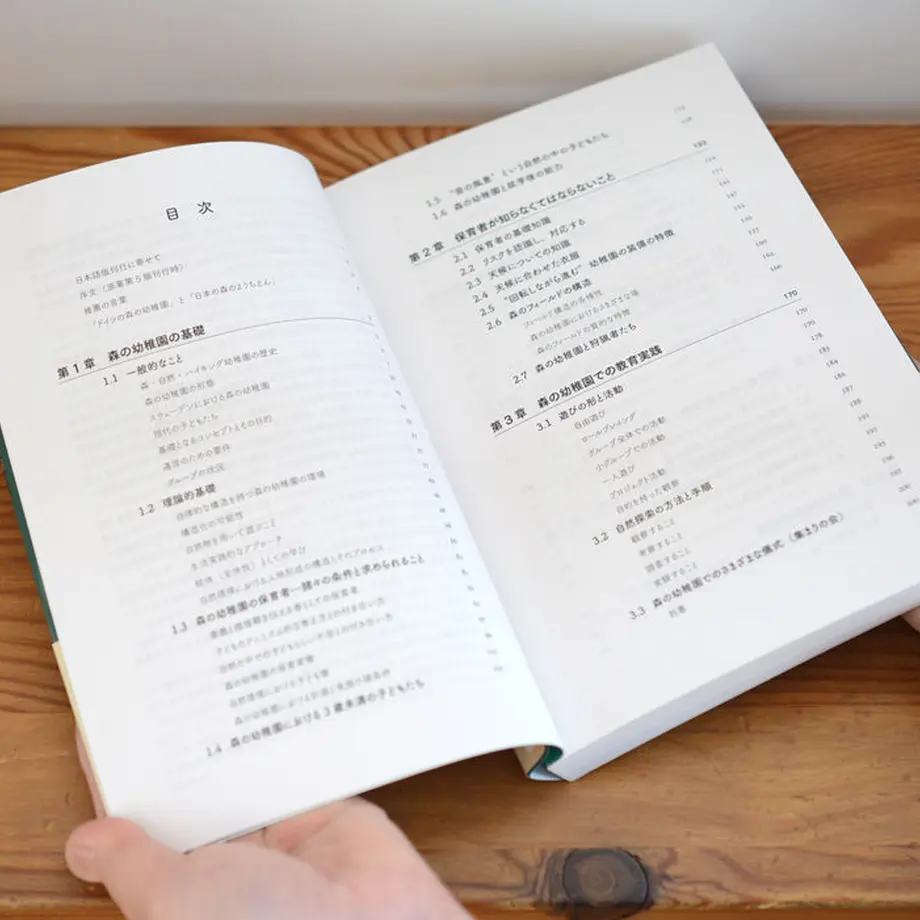 目 次
日本語版刊行に寄せて
序文（原著第5版刊行時）
推薦の言葉
「ドイツの森の幼稚園」と「日本の森のようちえん」
第1章 森の幼稚園の基礎
1.1 一般的なこと
森・自然・ハイキング幼稚園の歴史
森の幼稚園の形態
スウェーデンにおける森の幼稚園
現代の子どもたち
基礎となるコンセプトとその目的
運営のための要件
グループの状況
1.2 理論的基礎
自律的な構造を持つ森の幼稚園の環境
構造化の可能性
自然物を用いて遊ぶこと
生活実践的なアプローチ
としての学び
自然環境における人格形成の構造とそのプロセス
1.3 森の幼稚園の保育者―諸々の条件と求められること
森の幼稚園の保育実習
自然環境における子ども像
1.4 森の幼稚園における3歳未満の子どもたち
1.5 “音の風景”という自然の中の子どもたち
1.6 森の幼稚園と就学後の能力
第2章 保育者が知らなくてはならないこと
2.1 保育者の基礎知識
2.2 リスクを認識し、対応する
2.3 天候についての知識
2.4 天候に合わせた衣服
2.5 “回転しながら進む”幼稚園の装備の特徴
2.6 森のフィールドの構造
フィールド構造の多様性
森の幼稚園におけるさまざまな場
森のフィールドの質的な特徴
2.7 森の幼稚園と狩猟者たち
第3章 森の幼稚園での教育実践 170
3.1 遊びの形と活動 170
自由遊び
ロールプレイング
グループ全体での活動
小グループでの活動
一人遊び 187
プロジェクト活動 188
目的を持った観察
3.2 自然探索の方法と手順
観察すること 195
考察すること 196
調査すること
実験すること
3.3 森の幼稚園でのさまざまな儀式（集まりの会） 200